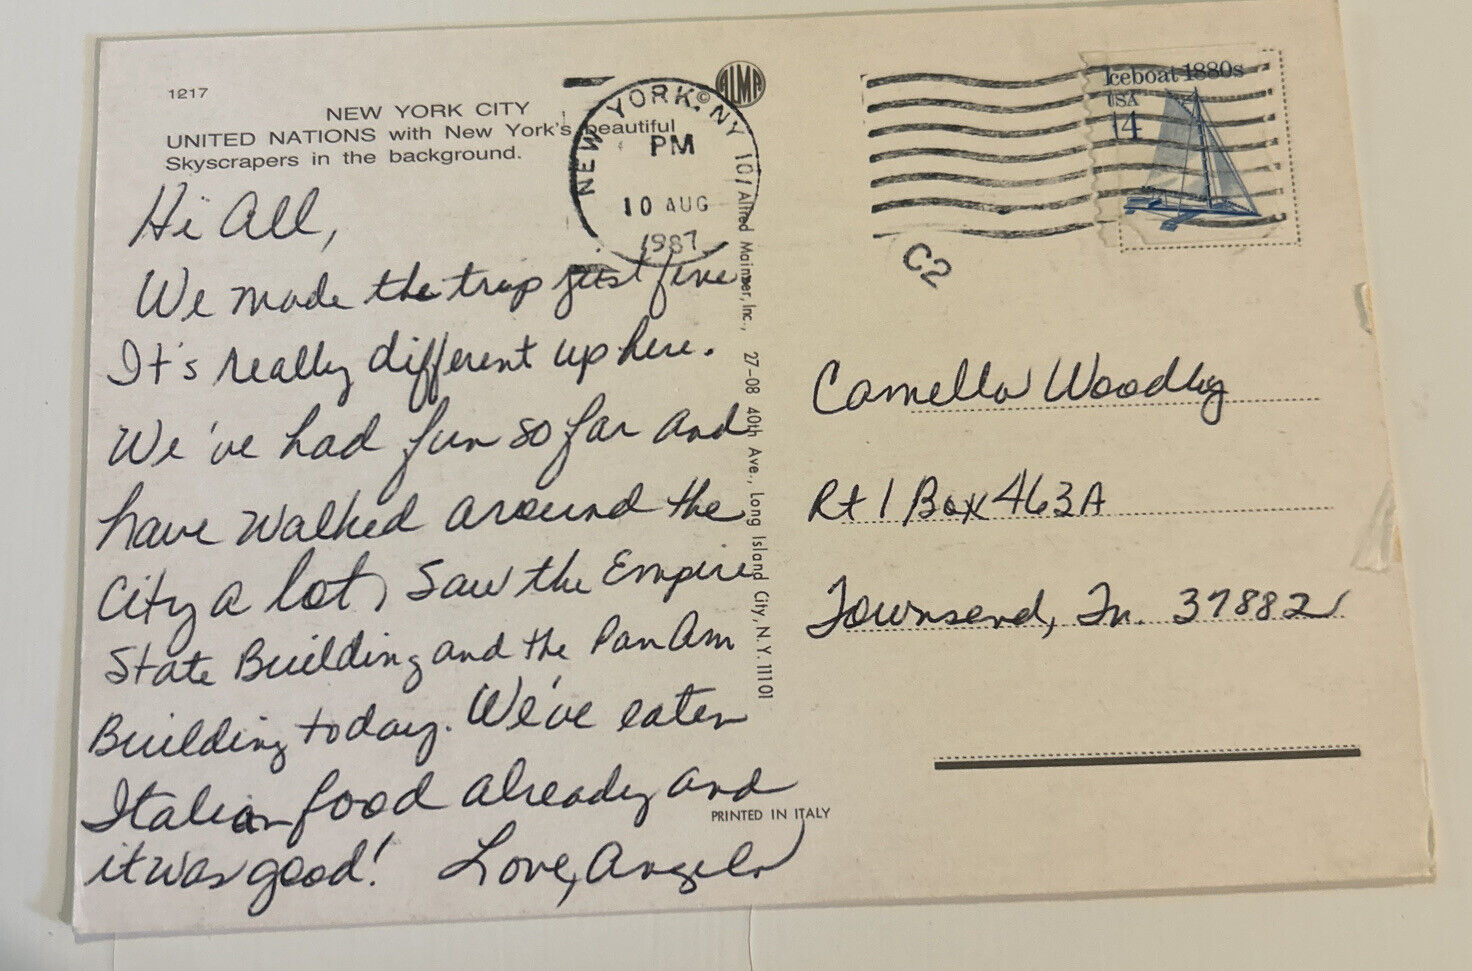 1217
NEW YORK CITY
UNITED NATIONS with New York's beautiful
Skyscrapers in the background.
Hi All,
We made the trip just fine
It's really different up here.
We've had fun so far and
have walked around the
City a lot, Saw the Empire
State Building and the Pan Am
Building today. We've eaten
Italian food already and
it was good! Love, Angela
ALMA
©
NEW YORK, NY 101
PM
10 AUG
1987
Alfred Mainzer, Inc., 27-08 40th Ave., Long Island City, N.Y. 11101
PRINTED IN ITALY
Iceboat 1880s
USA
14
C2
Camella Woodby
Rt 1 Box 463A
Townsend, Tn. 37882